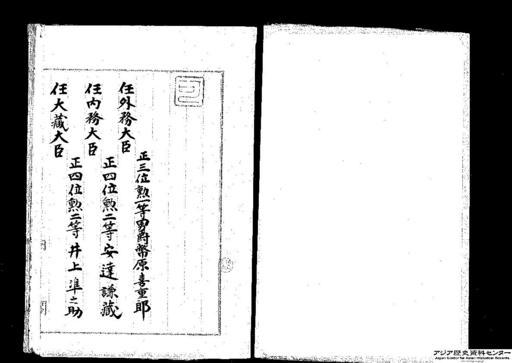 任外務大臣
正三位勲一等男爵幣原喜重郎
任内務大臣
正四位勲二等安達謙蔵
任大蔵大臣
正四位勲二等井上準之助
アジア歴史資料センター
Japan Center for Asian Historical Records